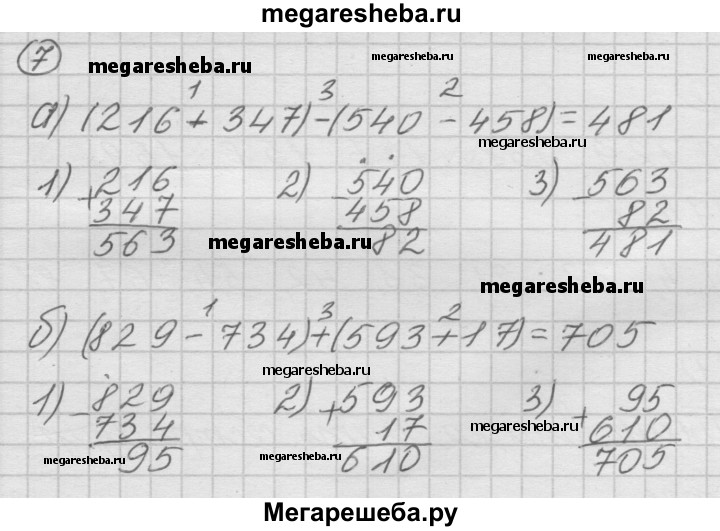 megaresheba.ru
7
megaresheba.ru megaresheba.ru megaresheba.ru
1 3 2
а) (216 + 347) - (540 - 458) = 481
megaresheba.ru
1) 216 2) 540 3) 563
+ 347 - 458 - 82
563 82 481
megaresheba.ru
megaresheba.ru
1 3 2
б) (829 - 734) + (593 + 17) = 705
megaresheba.ru
1) 829 2) 593 3) 95
- 734 + 17 + 610
megaresheba.ru
95 610 705
megaresheba.ru megaresheba.ru megaresheba.ru
Мегарешеба.ру